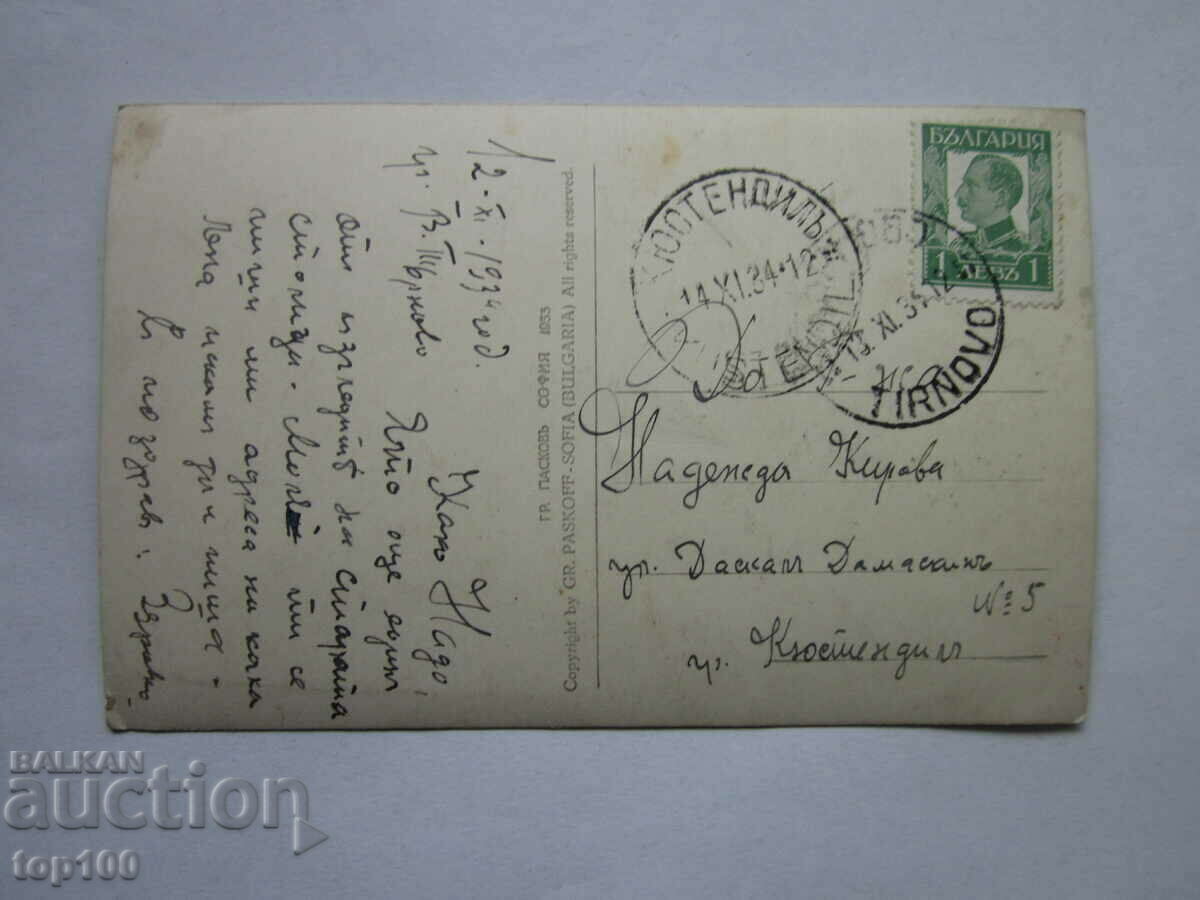 12-XI-1934 год.
гр. В. Търново
Како Надо,
Ето още един
отъ изгледитѣ на Старата
столица. ти се
пиши ми адреса на кака
Лона искамъ да и пиша.
Поздрави:
ГР. ПАСКОВЪ СОФИЯ 1933
Copyright by GR. PASKOFF-SOFIA (BULGARIA) All rights reserved.
БЪЛГАРИЯ
1 ЛЕВЪ 1
КЮСТЕНДИЛЪ
14.XI.34.12
13.XI.34.12
TIRNOVO
Надежда Кирова
ул. Даскалъ Дамаскинъ
№ 5
гр. Кюстендилъ
BALKAN
auction
top100